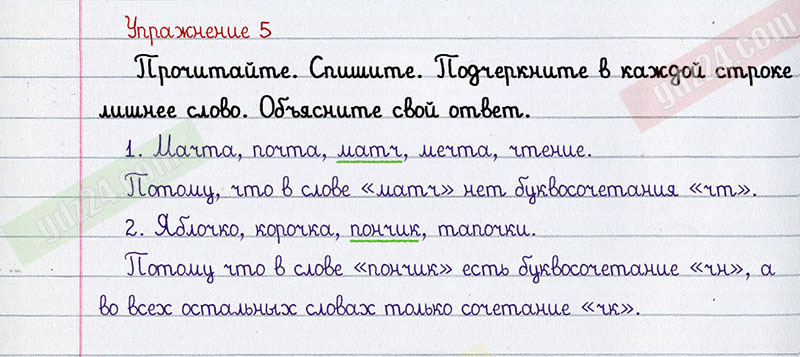 Упражнение 5
Прочитайте. Спишите. Подчеркните в каждой строке
лишнее слово. Объясните свой ответ.
1. Мачта, почта, матч, мечта, чтение.
Потому, что в слове «матч» нет буквосочетания «чт».
2. Яблочко, корочка, пончик, тапочки.
Потому что в слове «пончик» есть буквосочетание «чн», а
во всех остальных словах только сочетание «чк».
gdz24.com
gdz24.com